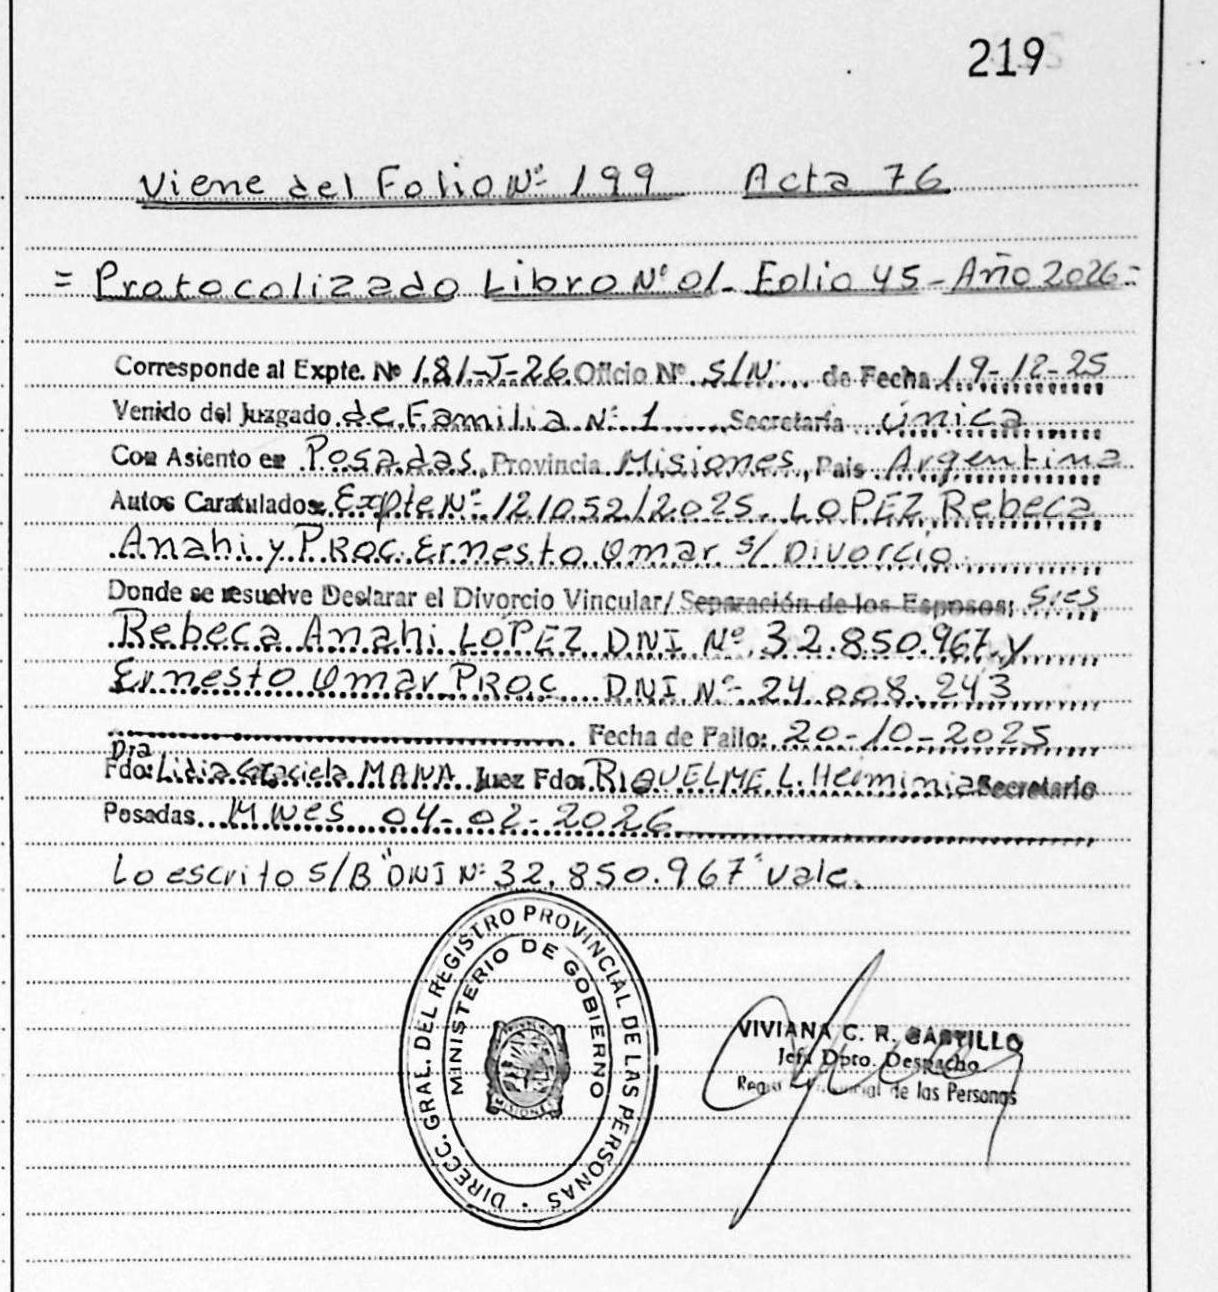 219
Viene del Folio Nº 199 Acta 76
= Protocolizado Libro Nº 01 - Folio 45 - Año 2026 =
Corresponde al Expte. Nº 181-J-26 Oficio Nº S/N de Fecha 19-12-25
Venido del Juzgado de Familia Nº 1 Secretaría única
Con Asiento en Posadas, Provincia Misiones, Pais Argentina
Autos Caratulados: Expte Nº 121052/2025. LOPEZ Rebeca
Anahi y PROC Ernesto Omar s/ Divorcio
Donde se resuelve Declarar el Divorcio Vincular/ Separación de los Esposos: Sres
Rebeca Anahi LOPEZ DNI Nº 32.850.967 y
Ernesto Omar PROC DNI Nº 24.008.243
Fecha de Fallo: 20-10-2025
Dra
Fdo: Lidia Graciela MANA Juez Fdo: RIQUELME L. Herminia Secretario
Posadas Mnes 04-02-2026
Lo escrito S/B "DNI Nº 32.850.967" vale.
DIRECC. GRAL. DEL REGISTRO PROVINCIAL DE LAS PERSONAS
MINISTERIO DE GOBIERNO
MISIONES
VIVIANA C. R. CASTILLO
Jefa Dpto. Despacho
de las Personas